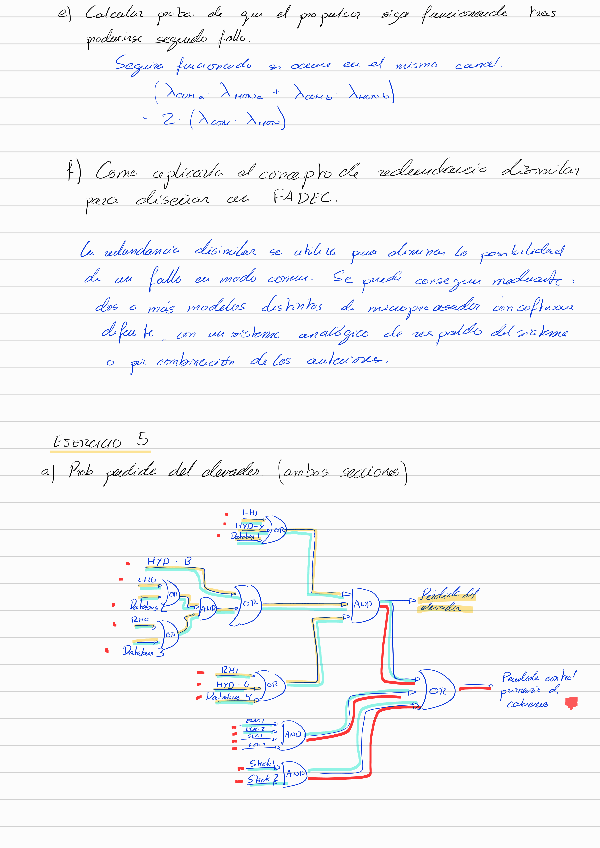 e) Calcular proba de que el propulsor siga funcionando tras
producirse segundo fallo.
Seguirá funcionando si ocurre en el mismo canal.
(λcom a · λmon a + λcom b · λmon b)
2 · (λcom · λmon)
f) Como aplicaría el concepto de redundancia disimilar
para diseñar un FADEC.
La redundancia disimilar se utiliza para eliminar la posibilidad
de un fallo en modo comun. Se puede conseguir mediante
dos o más modelos distintos de microprocesador con software
con un sistema analógico de respaldo del sistema
o por combinación de los anteriores.
EJERCICIO 5
a) Prob perdida del elevador (ambas secciones)
OR
HYD - B
OR
Databus 3
OR
AND
OR
AND
Perdida del
elevador
HYD
Databus
OR
OR
Perdida control
AND
Stick 1
Stick 2
AND